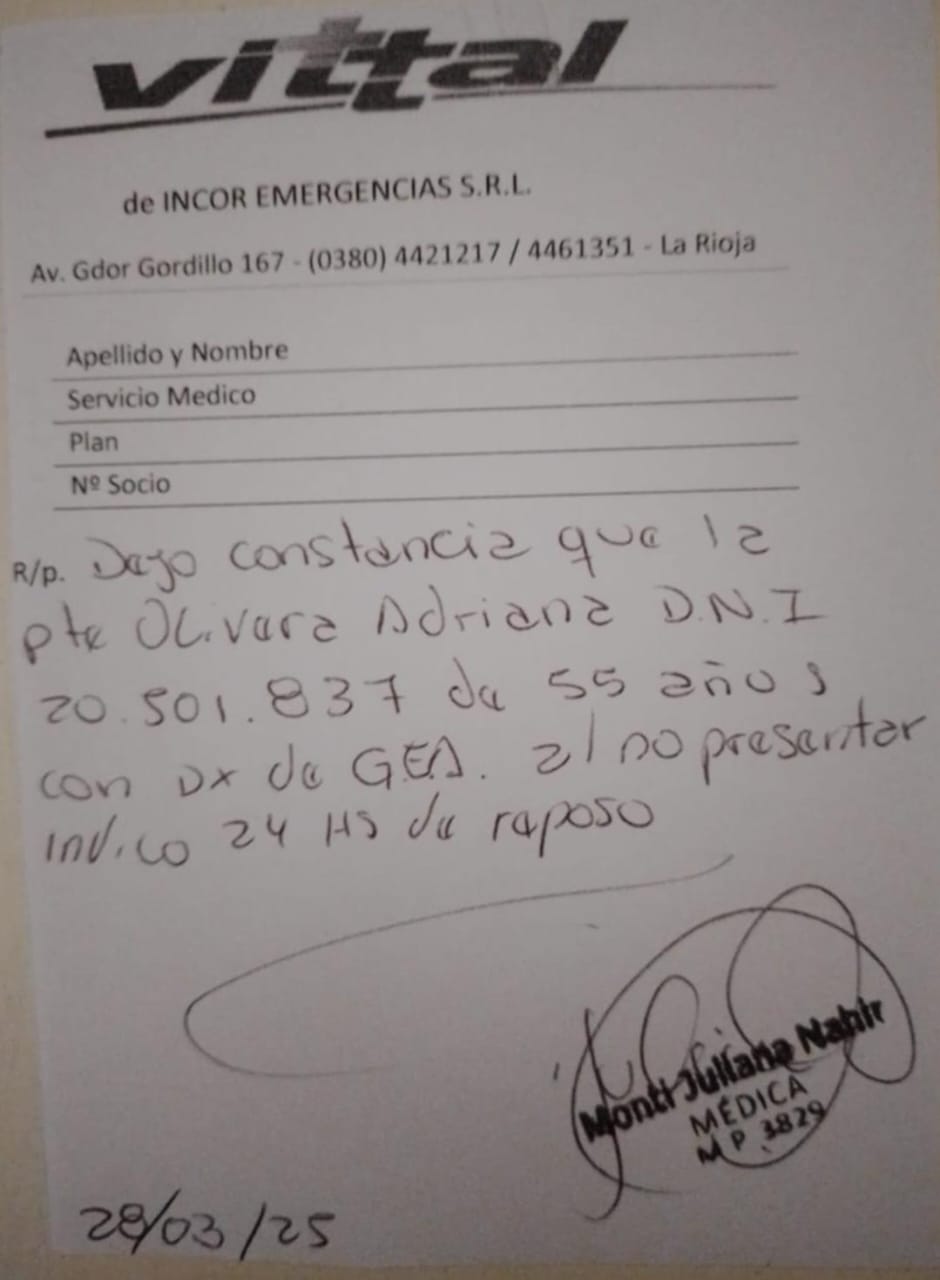 vittal
de INCOR EMERGENCIAS S.R.L.
Av. Gdor Gordillo 167 - (0380) 4421217 / 4461351 - La Rioja
Apellido y Nombre
Servicio Medico
Plan
Nº Socio
R/p. Dejo constancia que la
pte Olivera Adriana D.N.I
20.501.837 de 55 años
con Dx de GEA. al no presentar
indico 24 Hs de reposo
Monti Juliana Nahir
MÉDICA
M P 3829
28/03/25